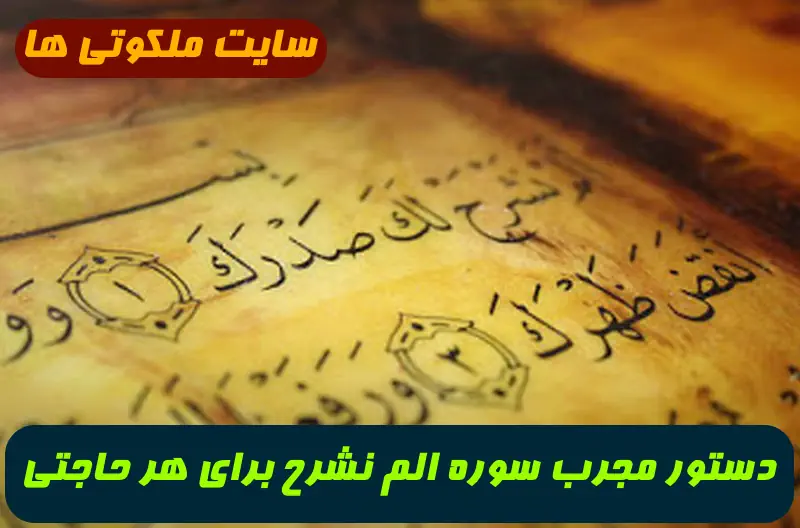 سایت ملکوتی ها
بسـ
نَشْرَحْ لَكَ صَدْرَكَ ١ وَوَ
أَنقَضَ ظَهْرَكَ ٣ وَرَفَعْنَا
دستور مجرب سوره الم نشرح برای هر حاجتی